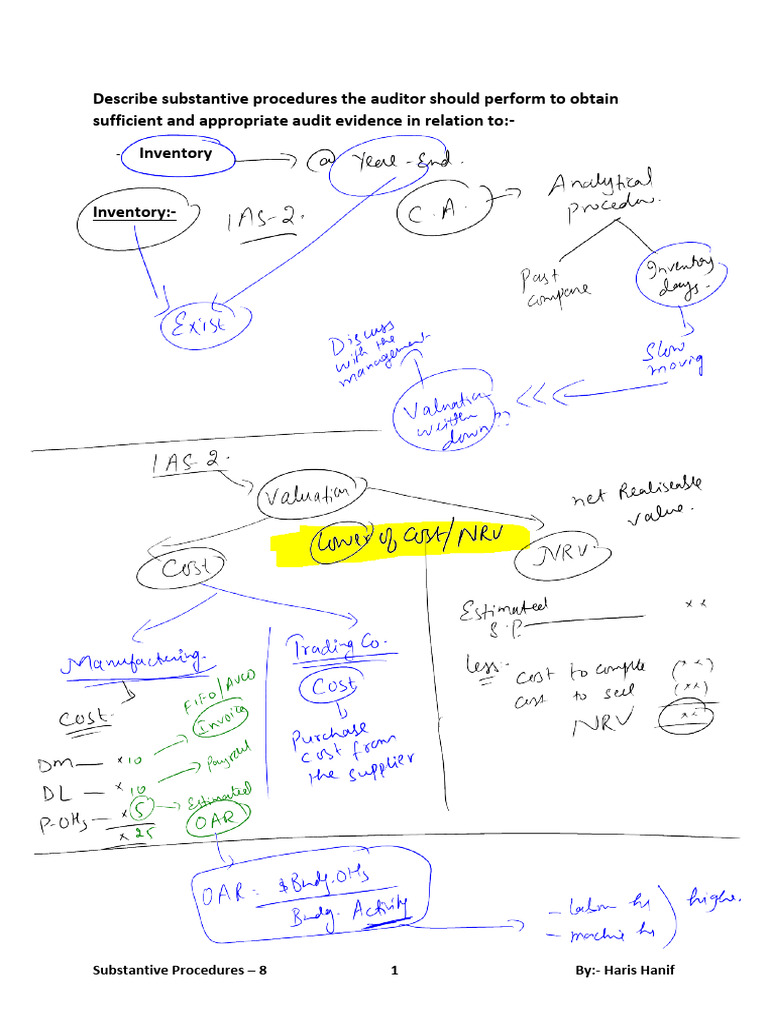 Describe substantive procedures the auditor should perform to obtain
sufficient and appropriate audit evidence in relation to:-
- Inventory
@ Year-End.
Inventory:-
IAS-2.
C.A.
Analytical
procedure.
Past
compare
Inventory
days.
Exist
Slow
moving
Discuss
with the
management.
Valuation
written
down??
IAS-2.
Valuation
Lower of cost/NRV
net Realiseable
value.
Cost
NRV.
Manufacturing.
Trading Co.
Cost
Purchase
cost from
the supplier
Cost.
FIFO/AVCO
Invoice
DM — x10
Payroll
DL — x10
Estimated
P-OHs — x5
OAR
x25
Estimated
S.P. xx
Less:-
cost to comple (xx)
cost to sell (xx)
NRV xx
OAR = $Budg.OHs
Budg. Activity
- labour hr
- machine hr
higher.
Substantive Procedures – 8 1 By:- Haris Hanif